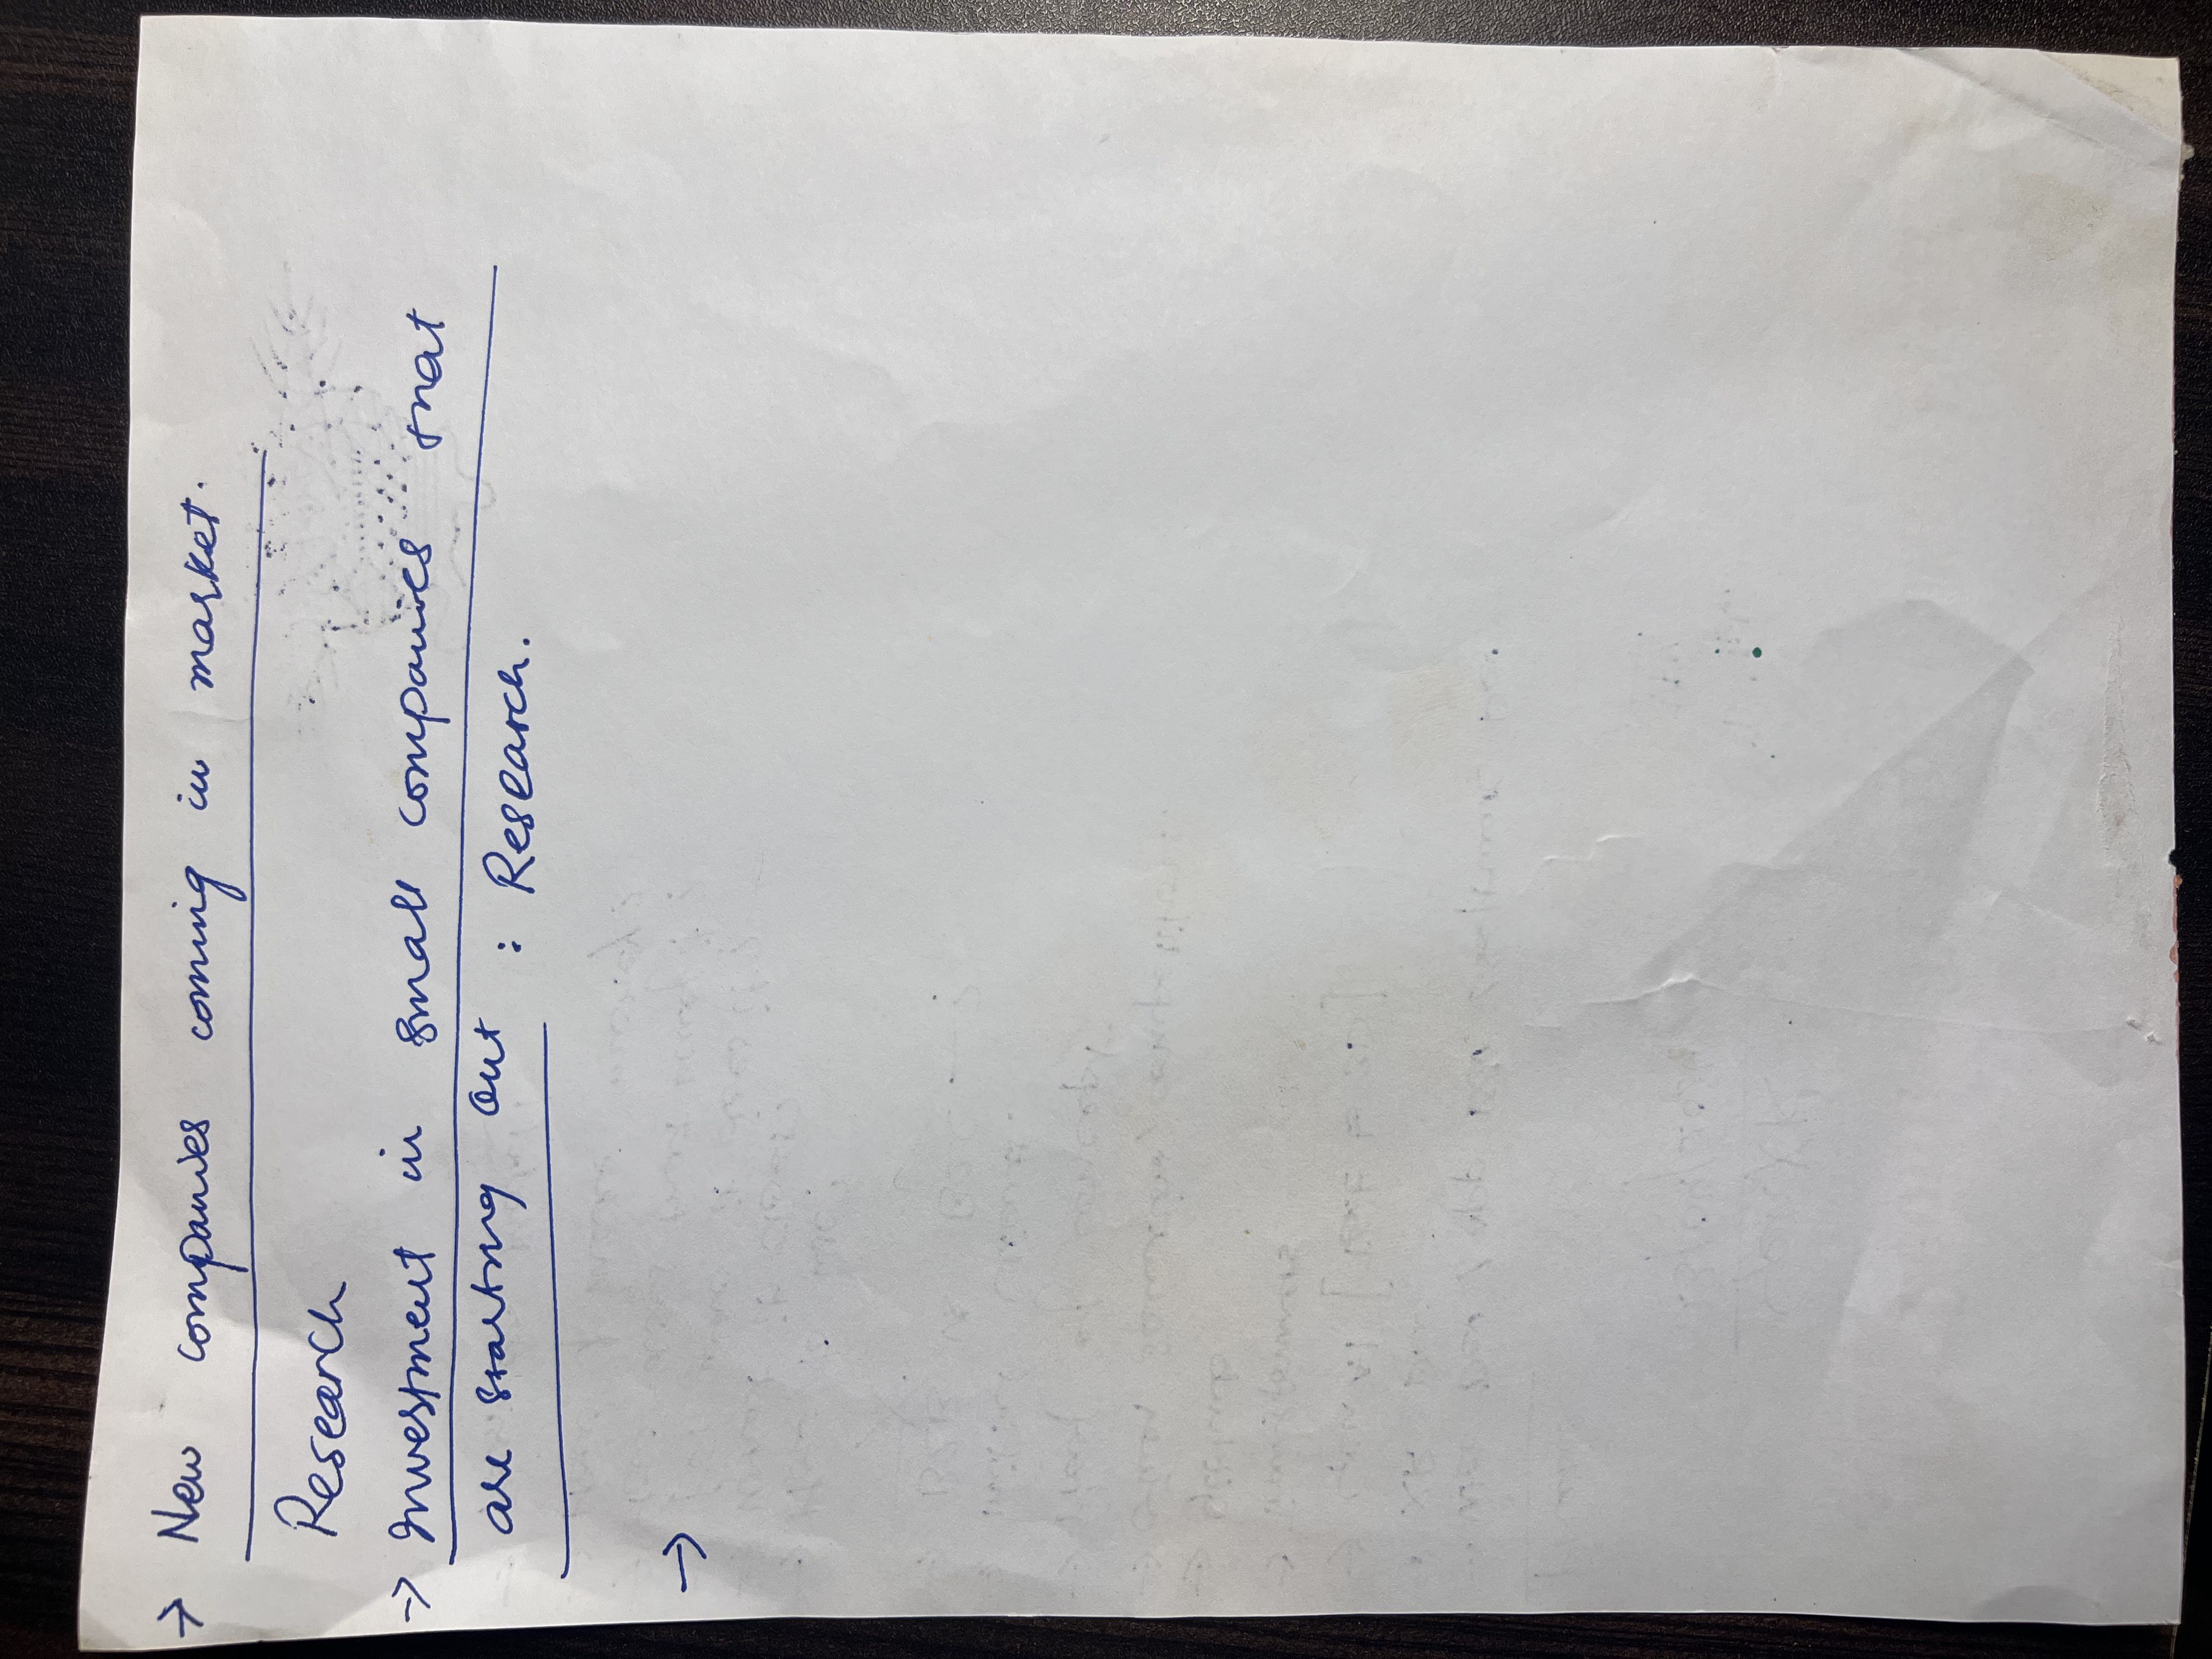 → New companies coming in market.
Research
→ Investment in small companies that
are starting out : Research.
→